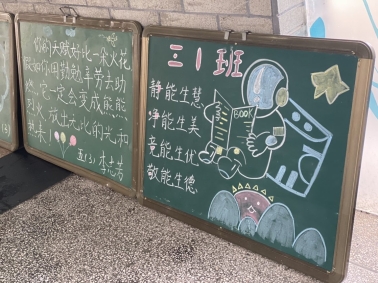 你的天赋好比一朵火花
假如你用勤勉辛劳去助
燃，它一定会变成熊熊
烈火，放出无比的光和
热来！
五(3) 李志芳
三1班
静能生慧
净能生美
竞能生优
敬能生德
BOOK